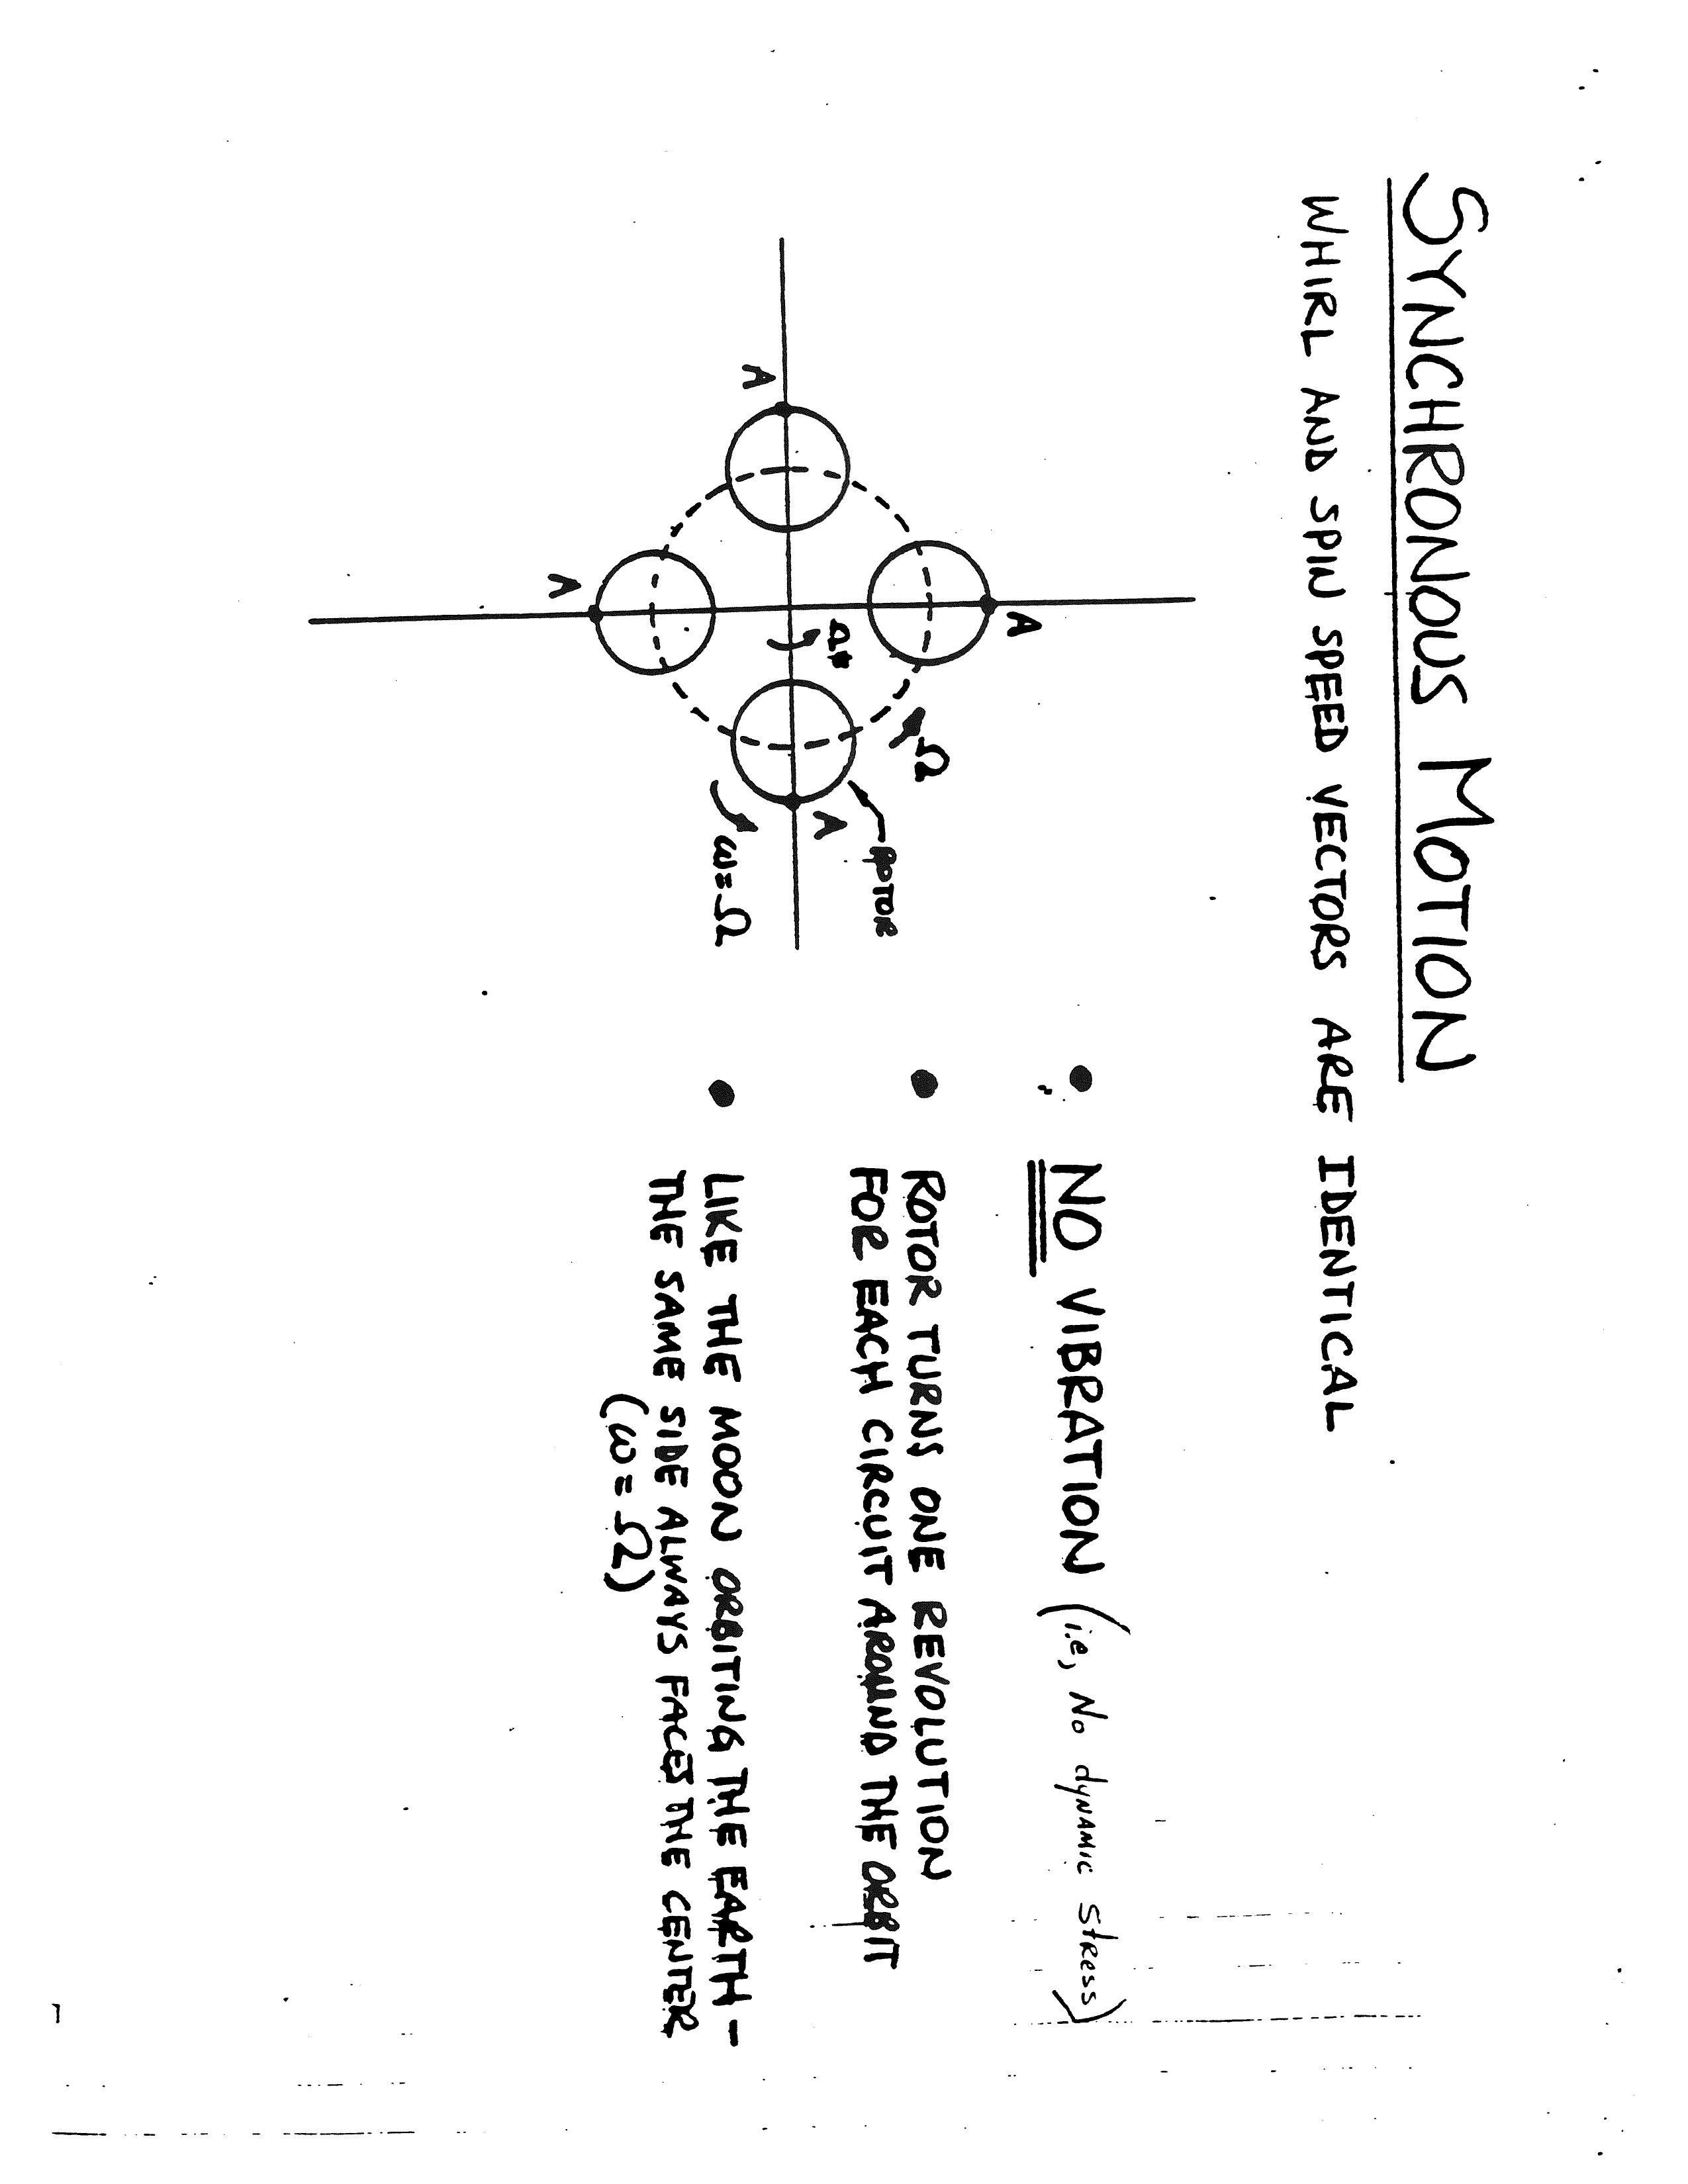 SYNCHRONOUS MOTION
WHIRL AND SPIN SPEED VECTORS ARE IDENTICAL
A
A
A
A
Ω
ROTOR
ω=Ω
• NO VIBRATION (i.e, No dynamic stress)
• ROTOR TURNS ONE REVOLUTION
FOR EACH CIRCUIT AROUND THE ORBIT
• LIKE THE MOON ORBITING THE EARTH-
THE SAME SIDE ALWAYS FACES THE CENTER
(ω=Ω)